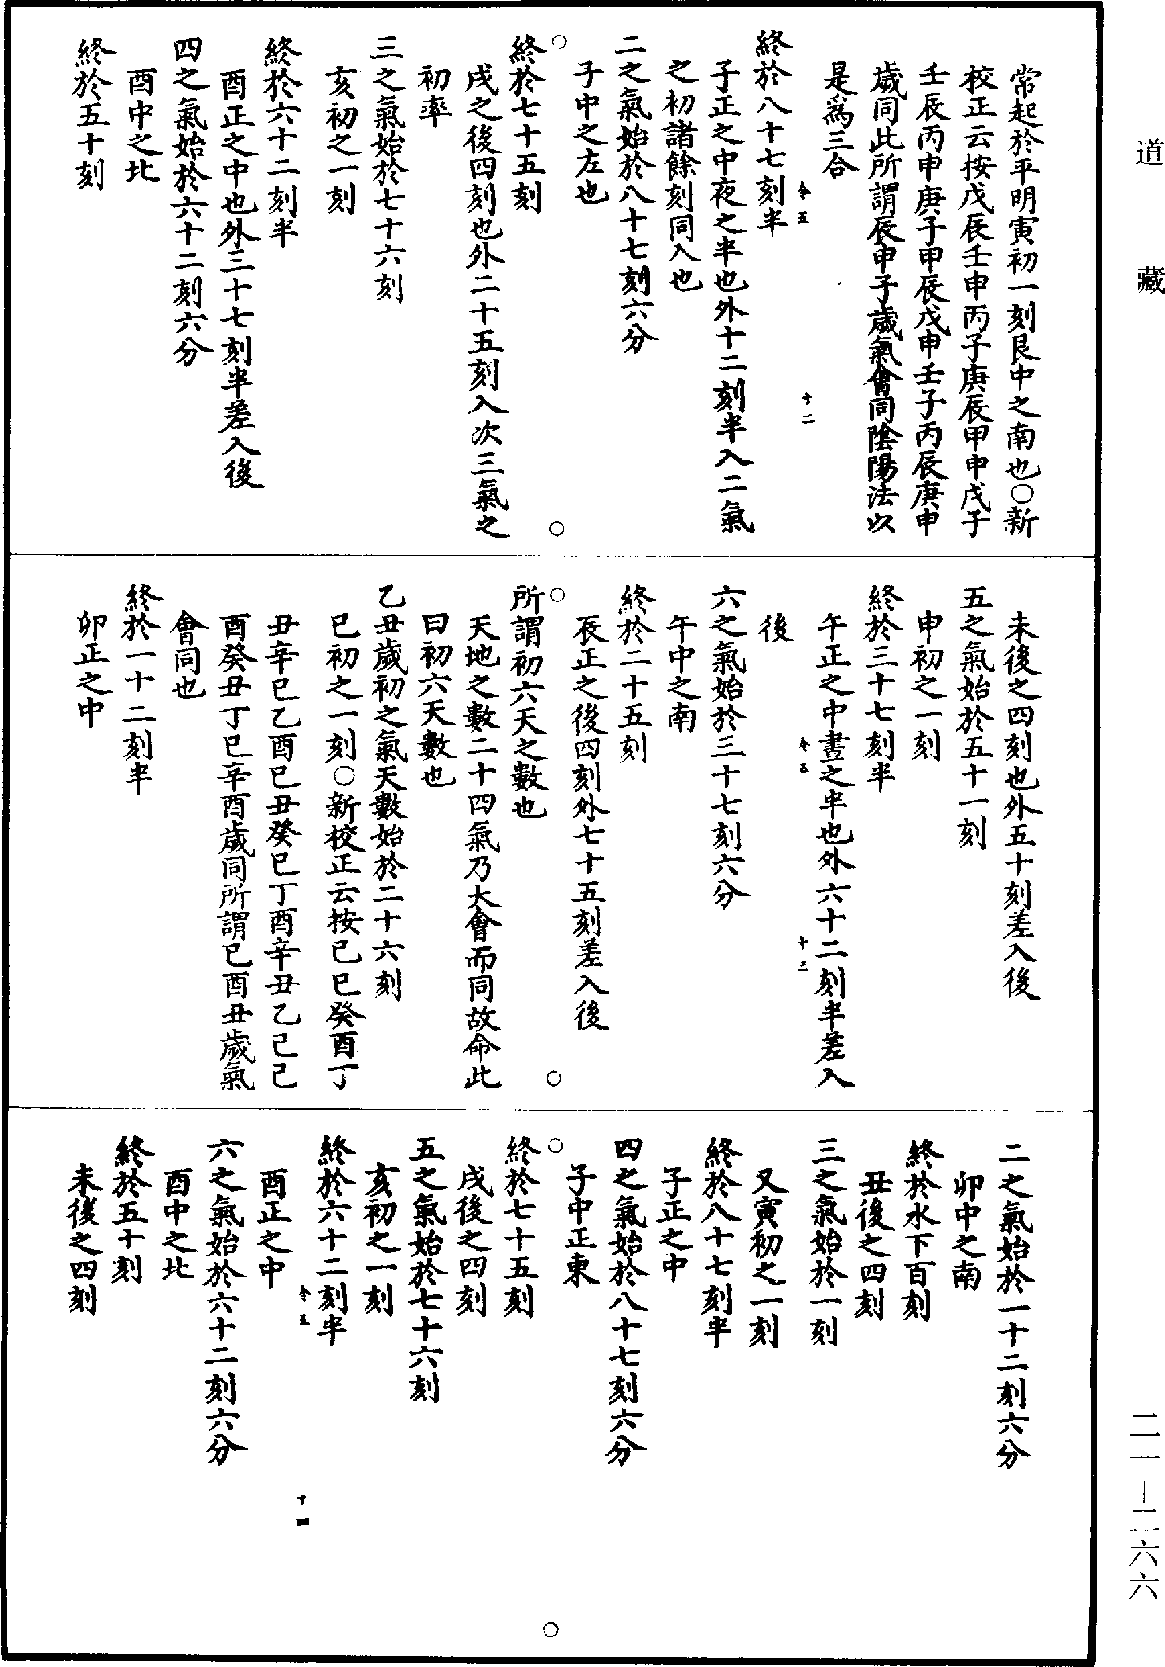 道藏
常起於平明寅初一刻艮中之南也○新
校正云按戊辰壬申丙子庚辰甲申戊子
壬辰丙申庚子甲辰戊申壬子丙辰庚申
歲同此所謂辰申子歲氣會同陰陽法以
是爲三合
終於八十七刻半
子正之中夜之半也外十二刻半入二氣
之初諸餘刻同入也
二之氣始於八十七刻六分
子中之左也
終於七十五刻
戌之後四刻也外二十五刻入次三氣之
初率
三之氣始於七十六刻
亥初之一刻
終於六十二刻半
酉正之中也外三十七刻半差入後
四之氣始於六十二刻六分
酉中之北
終於五十刻
未後之四刻也外五十刻差入後
五之氣始於五十一刻
申初之一刻
終於三十七刻半
午正之中晝之半也外六十二刻半差入
後
六之氣始於三十七刻六分
午中之南
終於二十五刻
辰正之後四刻外七十五刻差入後
所謂初六天之數也
天地之數二十四氣乃大會而同故命此
曰初六天數也
乙丑歲初之氣天數始於二十六刻
巳初之一刻○新校正云按己巳癸酉丁
丑辛巳乙酉己丑癸巳丁酉辛丑乙巳己
酉癸丑丁巳辛酉歲同所謂巳酉丑歲氣
會同也
終於一十二刻半
卯正之中
二之氣始於一十二刻六分
卯中之南
終於水下百刻
丑後之四刻
三之氣始於一刻
又寅初之一刻
終於八十七刻半
子正之中
四之氣始於八十七刻六分
子中正東
終於七十五刻
戌後之四刻
五之氣始於七十六刻
亥初之一刻
終於六十二刻半
酉正之中
六之氣始於六十二刻六分
酉中之北
終於五十刻
未後之四刻
十二
十三
十四
二一—二六六